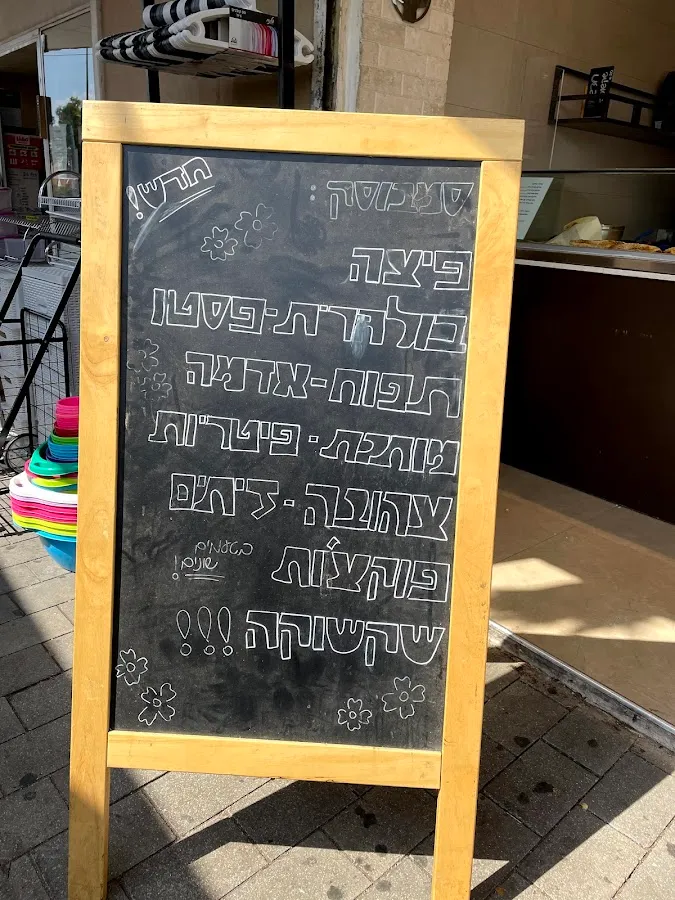 חדש!
סמבוסק:
פיצה
בולגרית-פסטו
תפוח-אדמה
מותכת-פיטריות
צהובה-זיתים
פוקצ'ות
בטעמים
שונים!
שקשוקה!!!